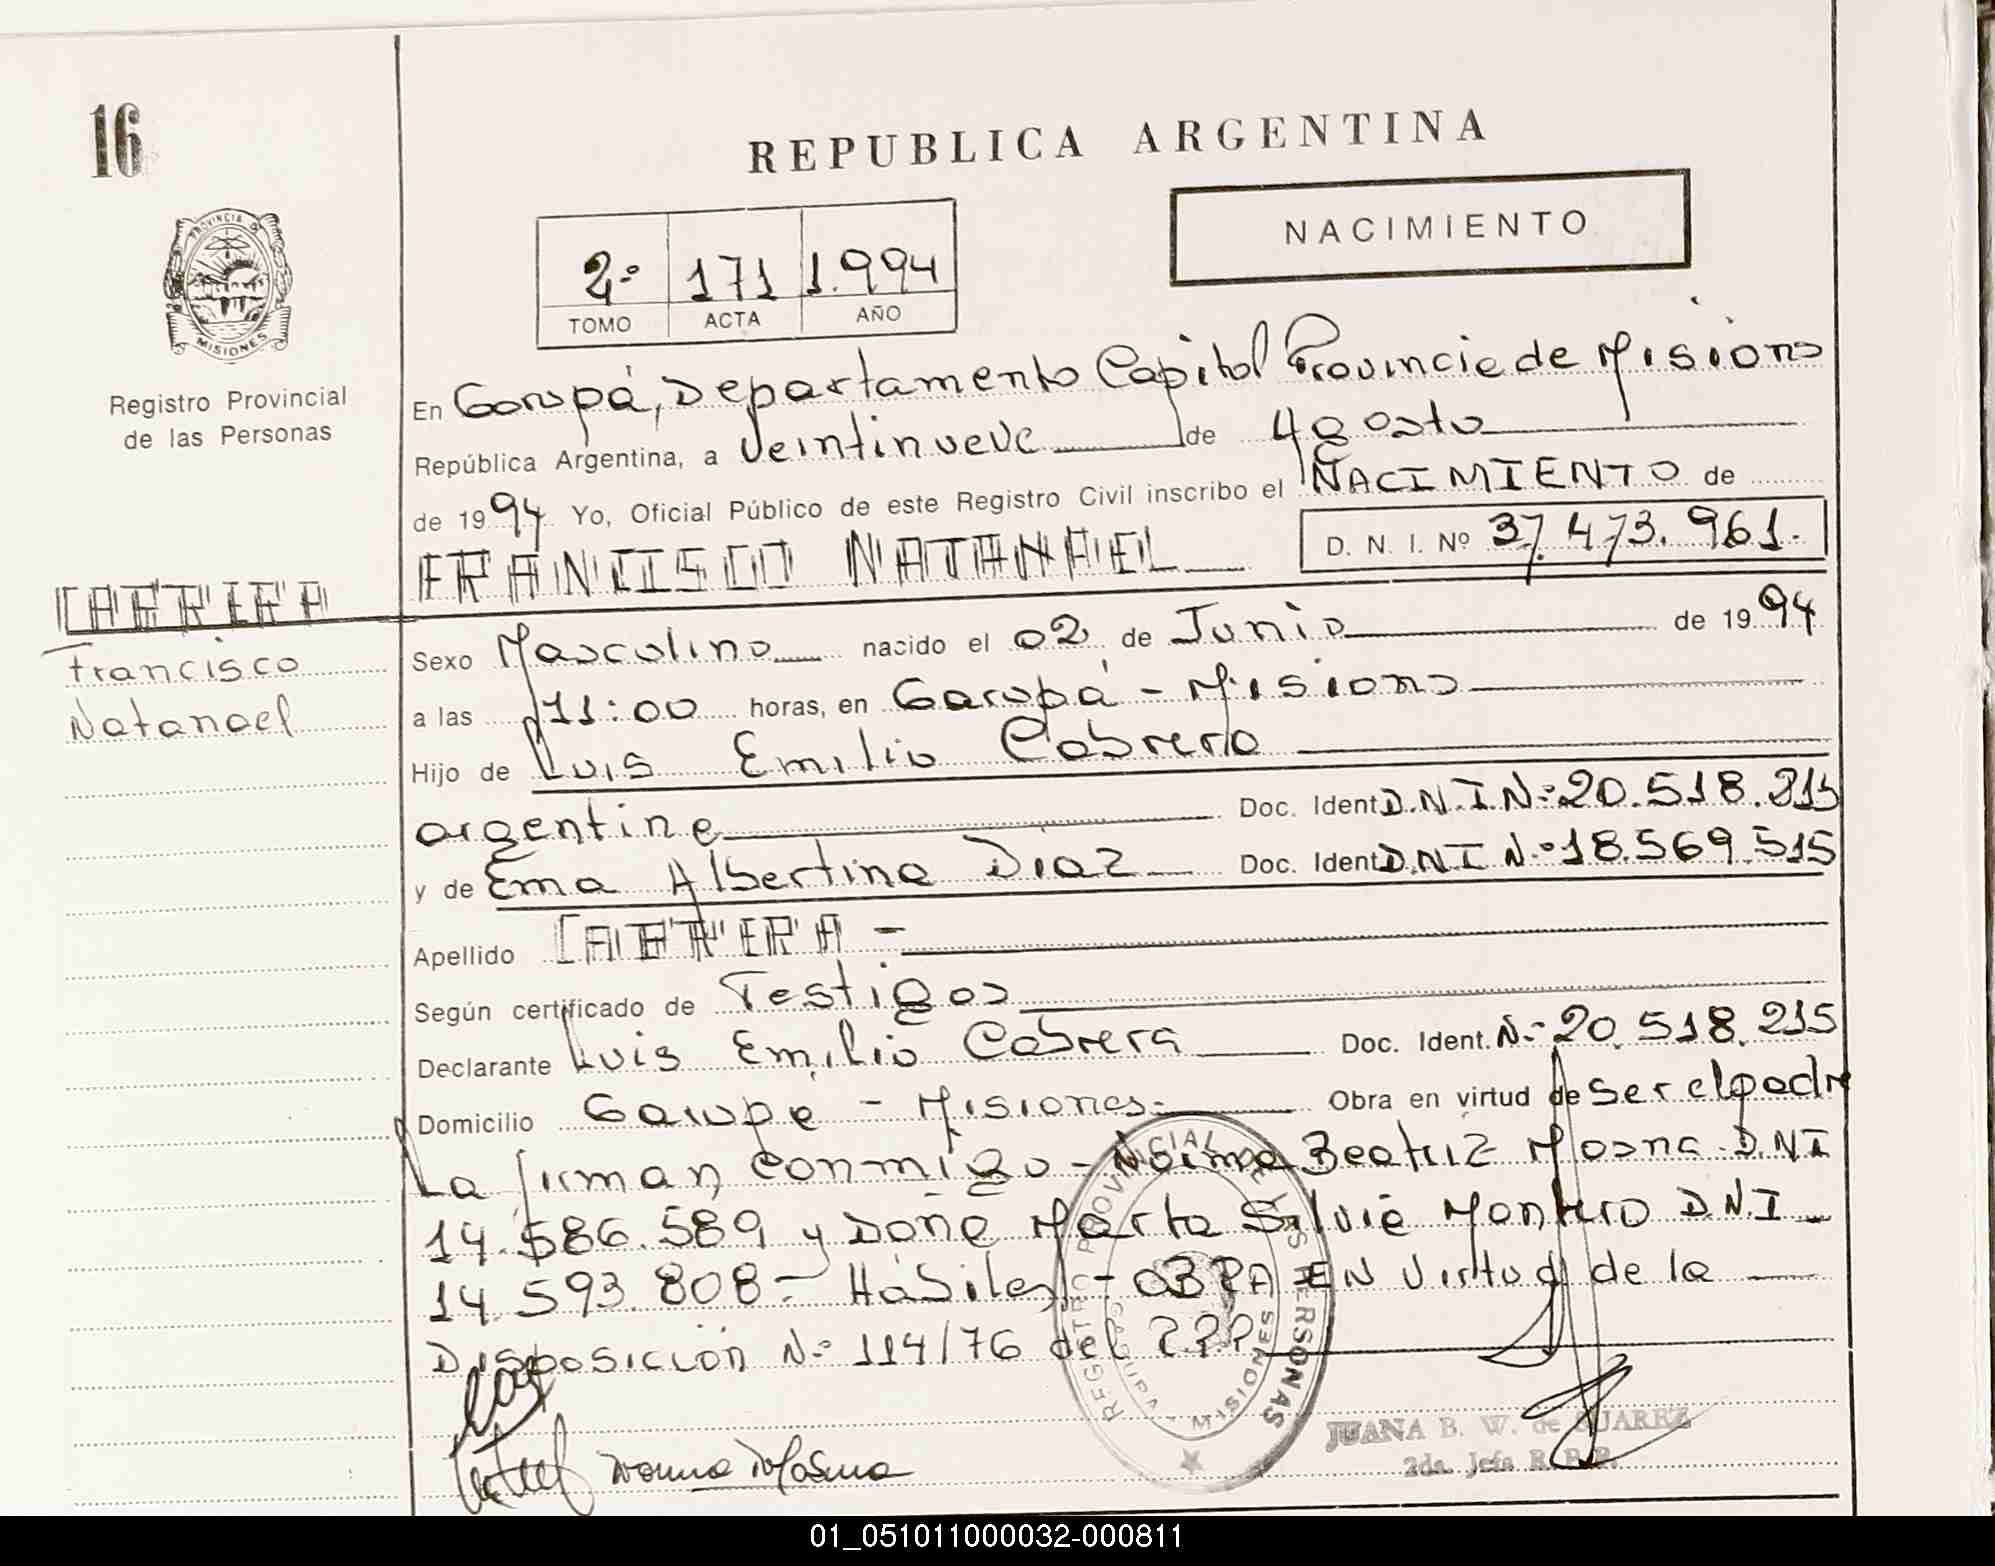 16
REPUBLICA ARGENTINA
NACIMIENTO
2º 171 1.994
TOMO ACTA AÑO
PROVINCIA DE MISIONES
Registro Provincial
de las Personas
En Garupá, Departamento Capital Provincia de Misiones
República Argentina, a veintinueve de Agosto
de 1994 Yo, Oficial Público de este Registro Civil inscribo el NACIMIENTO de
FRANCISCO NATANAEL D. N. I. Nº 37.473.961.
CABRERA
Francisco
Natanael
Sexo Masculino nacido el 02 de Junio de 1994
a las 11:00 horas, en Garupá - Misiones
Hijo de Luis Emilio Cabrera
argentina Doc. Ident. D.N.I. Nº 20.518.215
y de Ema Albertina Diaz Doc. Ident. DNI Nº 18.569.515
Apellido CABRERA -
Según certificado de Testigos
Declarante Luis Emilio Cabrera Doc. Ident. Nº 20.518.215
Domicilio Garupá - Misiones.- Obra en virtud de ser el padre
La firman conmigo - Norma Beatriz DNI
14.586.589 y Doña Marta Silvia Montero D.N.I
14.593.808 - Hábiles - OBRA EN virtud de la
Disposición Nº 114/76 del R.P.P.
REGISTRO PROVINCIAL DE LAS PERSONAS
GARUPA - MISIONES
JUANA B. W. de SUAREZ
2da. Jefa R.P.P.
01_051011000032-000811